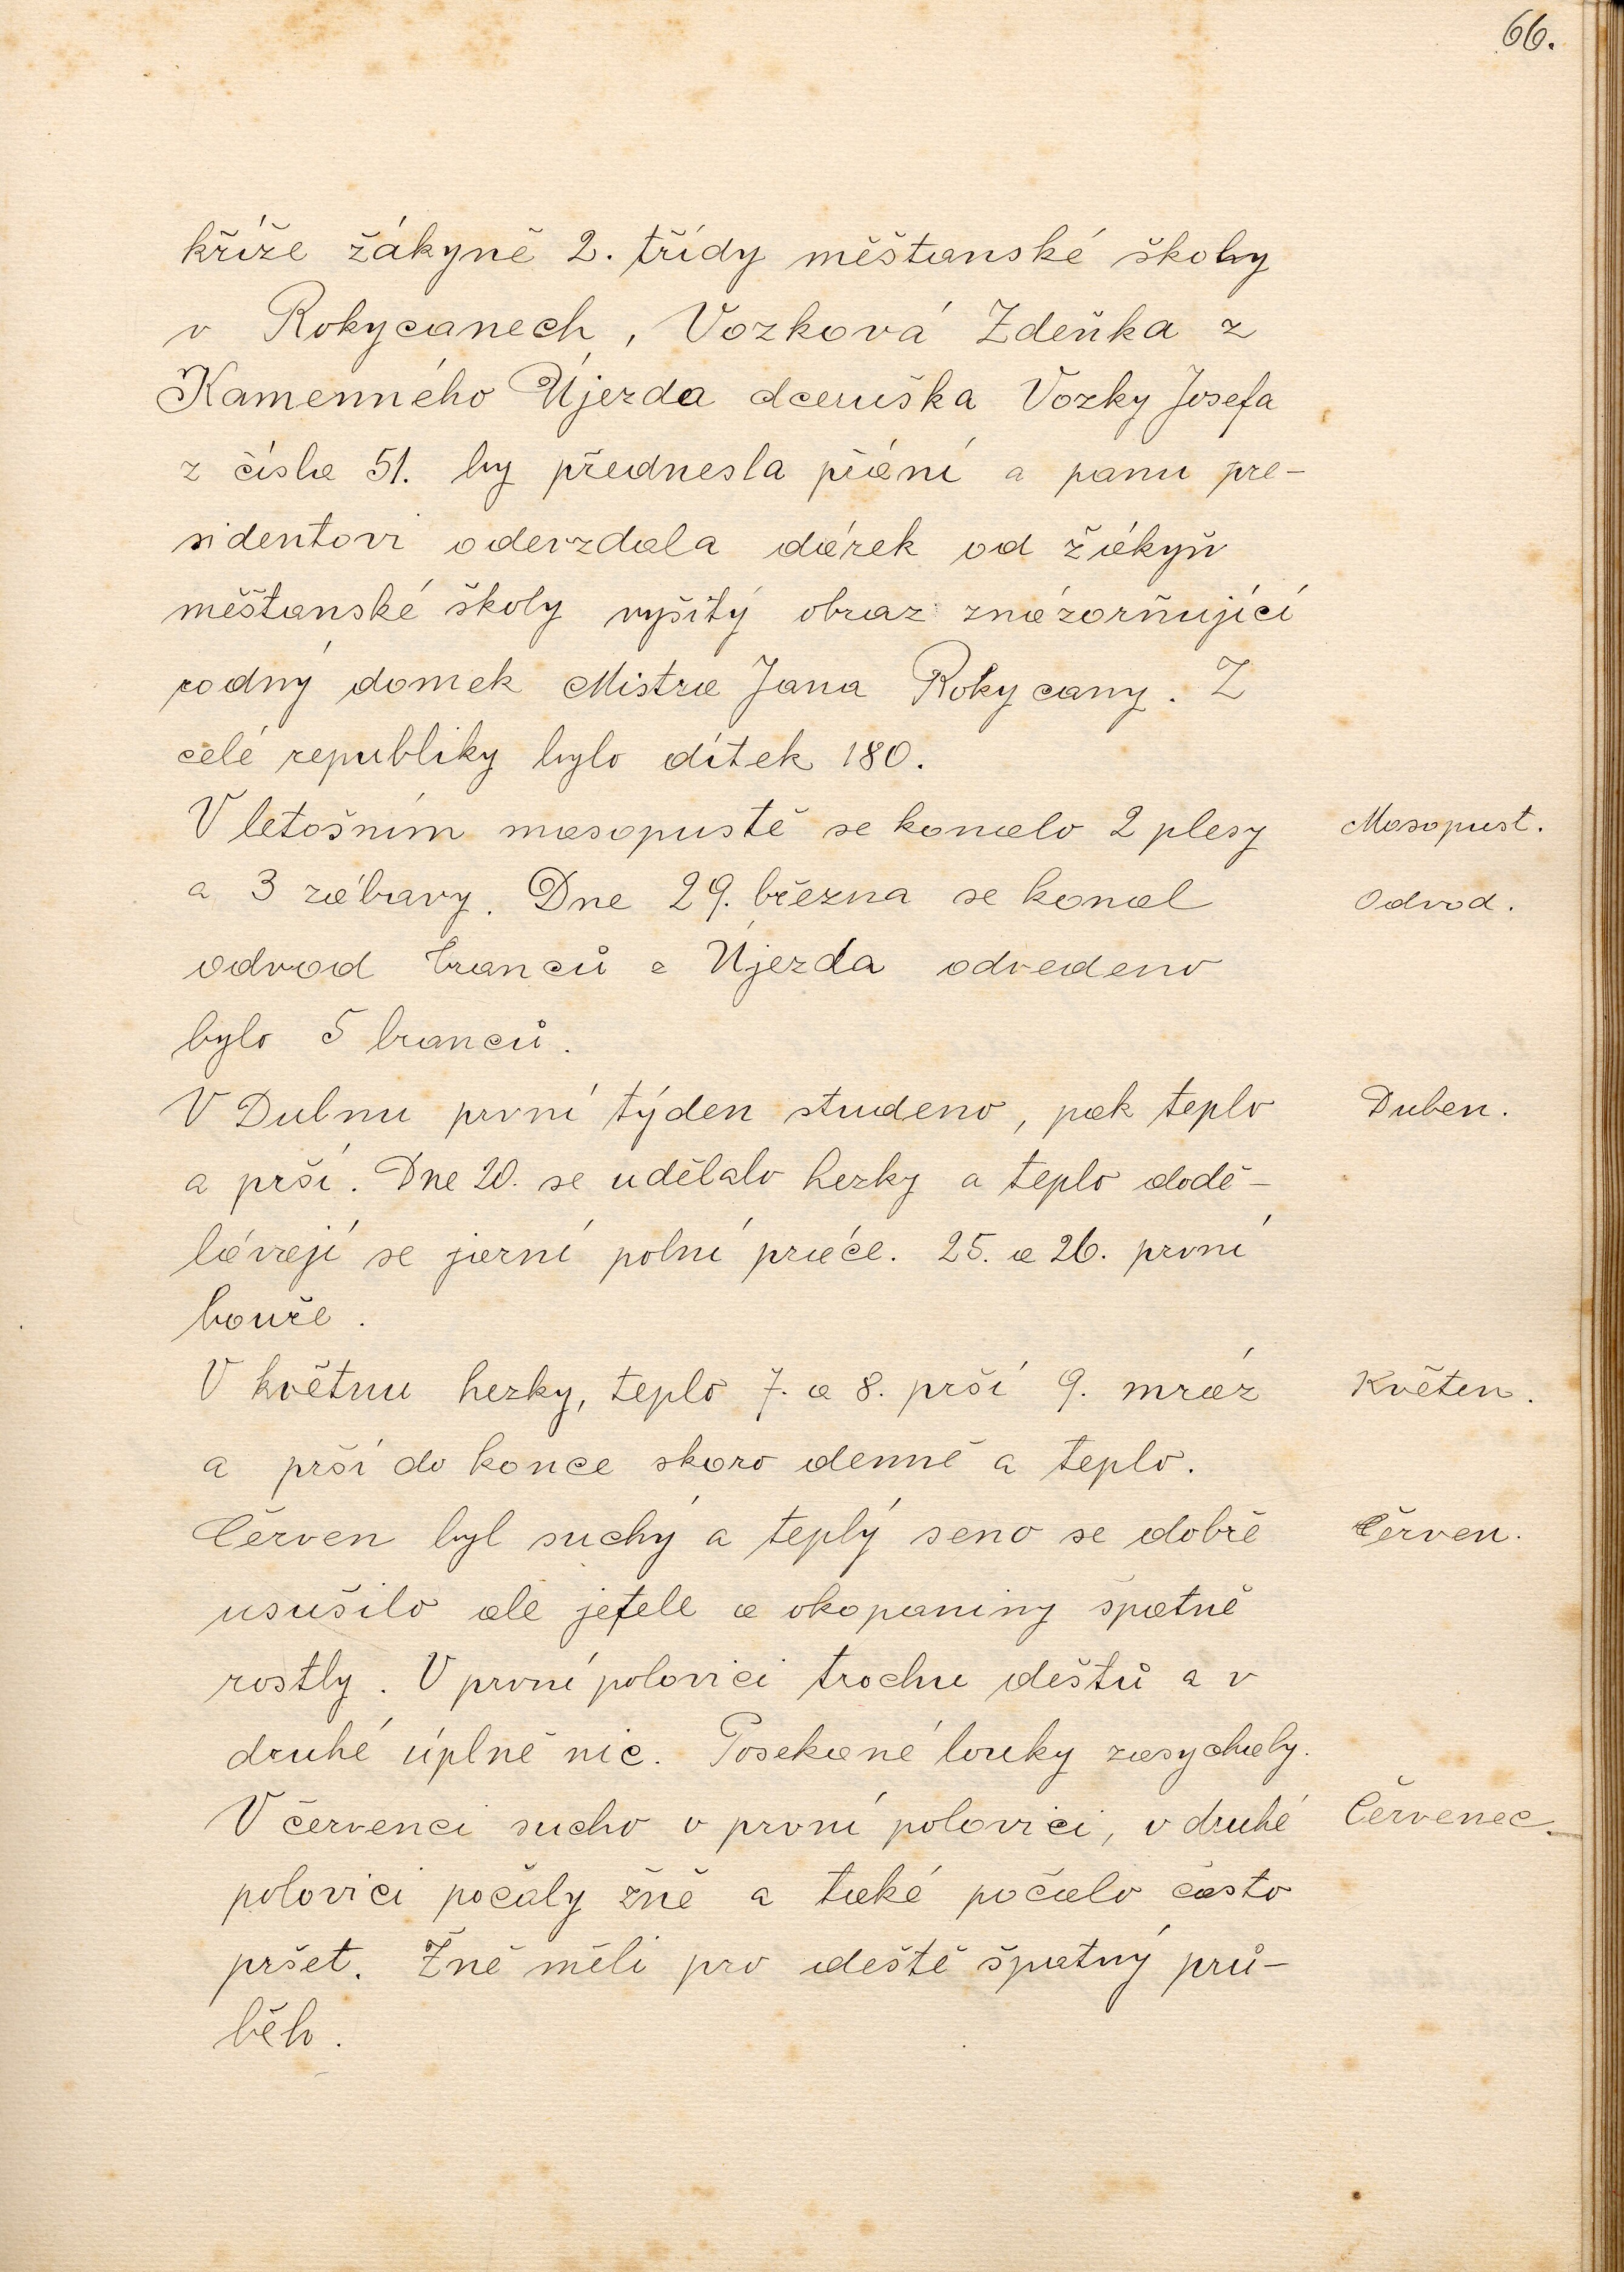 66.
kříže žákyně 2. třídy měštanské školy
v Rokycanech, Vozková Zdeňka z
Kamenného Újezda dceruška Vozky Josefa
z čísla 51. by přednesla přání a panu pre-
sidentovi odevzdala dárek od žákyň
měštanské školy vyšitý obraz znázorňující
rodný domek Mistra Jana Rokycany. Z
celé republiky bylo dítek 180.
V letošním masopustě se konalo 2 plesy
Masopust.
a 3 zábavy. Dne 29. března se konal
Odvod.
odvod branců z Újezda odvedeno
bylo 5 branců.
V Dubnu první týden studeno, pak teplo
Duben.
a prší. Dne 20. se udělalo hezky a teplo dodě-
lávají se jarní polní práce. 25. a 26. první
bouře.
V květnu hezky, teplo 7. a 8. prší 9. mráz
Květen.
a prší do konce skoro denně a teplo.
Červen byl suchý a teplý seno se dobře
Červen.
usušilo ale jetele a okopaniny špatně
rostly. V první polovici trochu deštů a v
druhé úplně nic. Posekané louky zasychaly.
V červenci sucho v první polovici, v druhé
Červenec.
polovici počaly žně a také počalo často
pršet. Žně měli pro deště špatný prů-
běh.